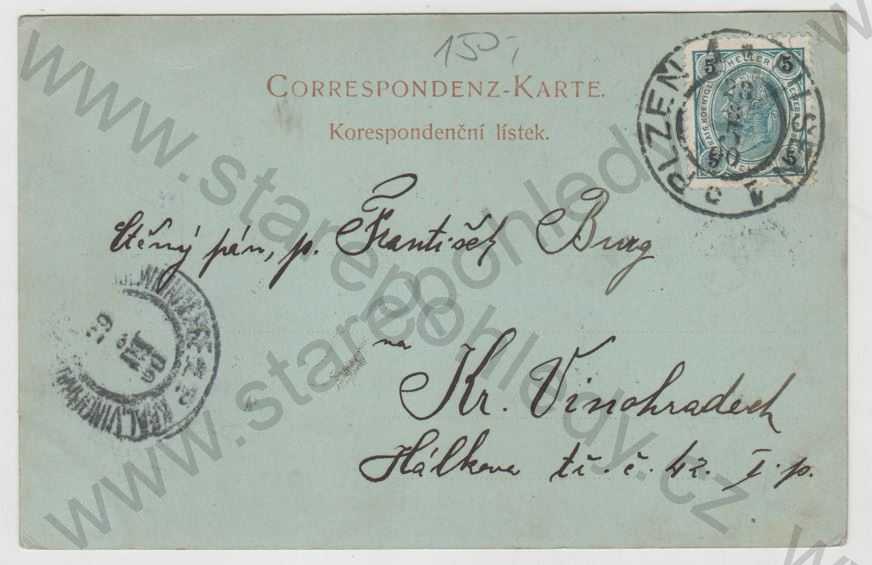 150,-
CORRESPONDENZ-KARTE.
Korespondenční lístek.
PLZEŇ 1 PILSEN 1
HELLER
5 5
5 5
Ctěný pán, p. František Burg
na
Kr. Vinohradech
Hálkova tř. č. 42. I. p.
www.starepohledy.cz